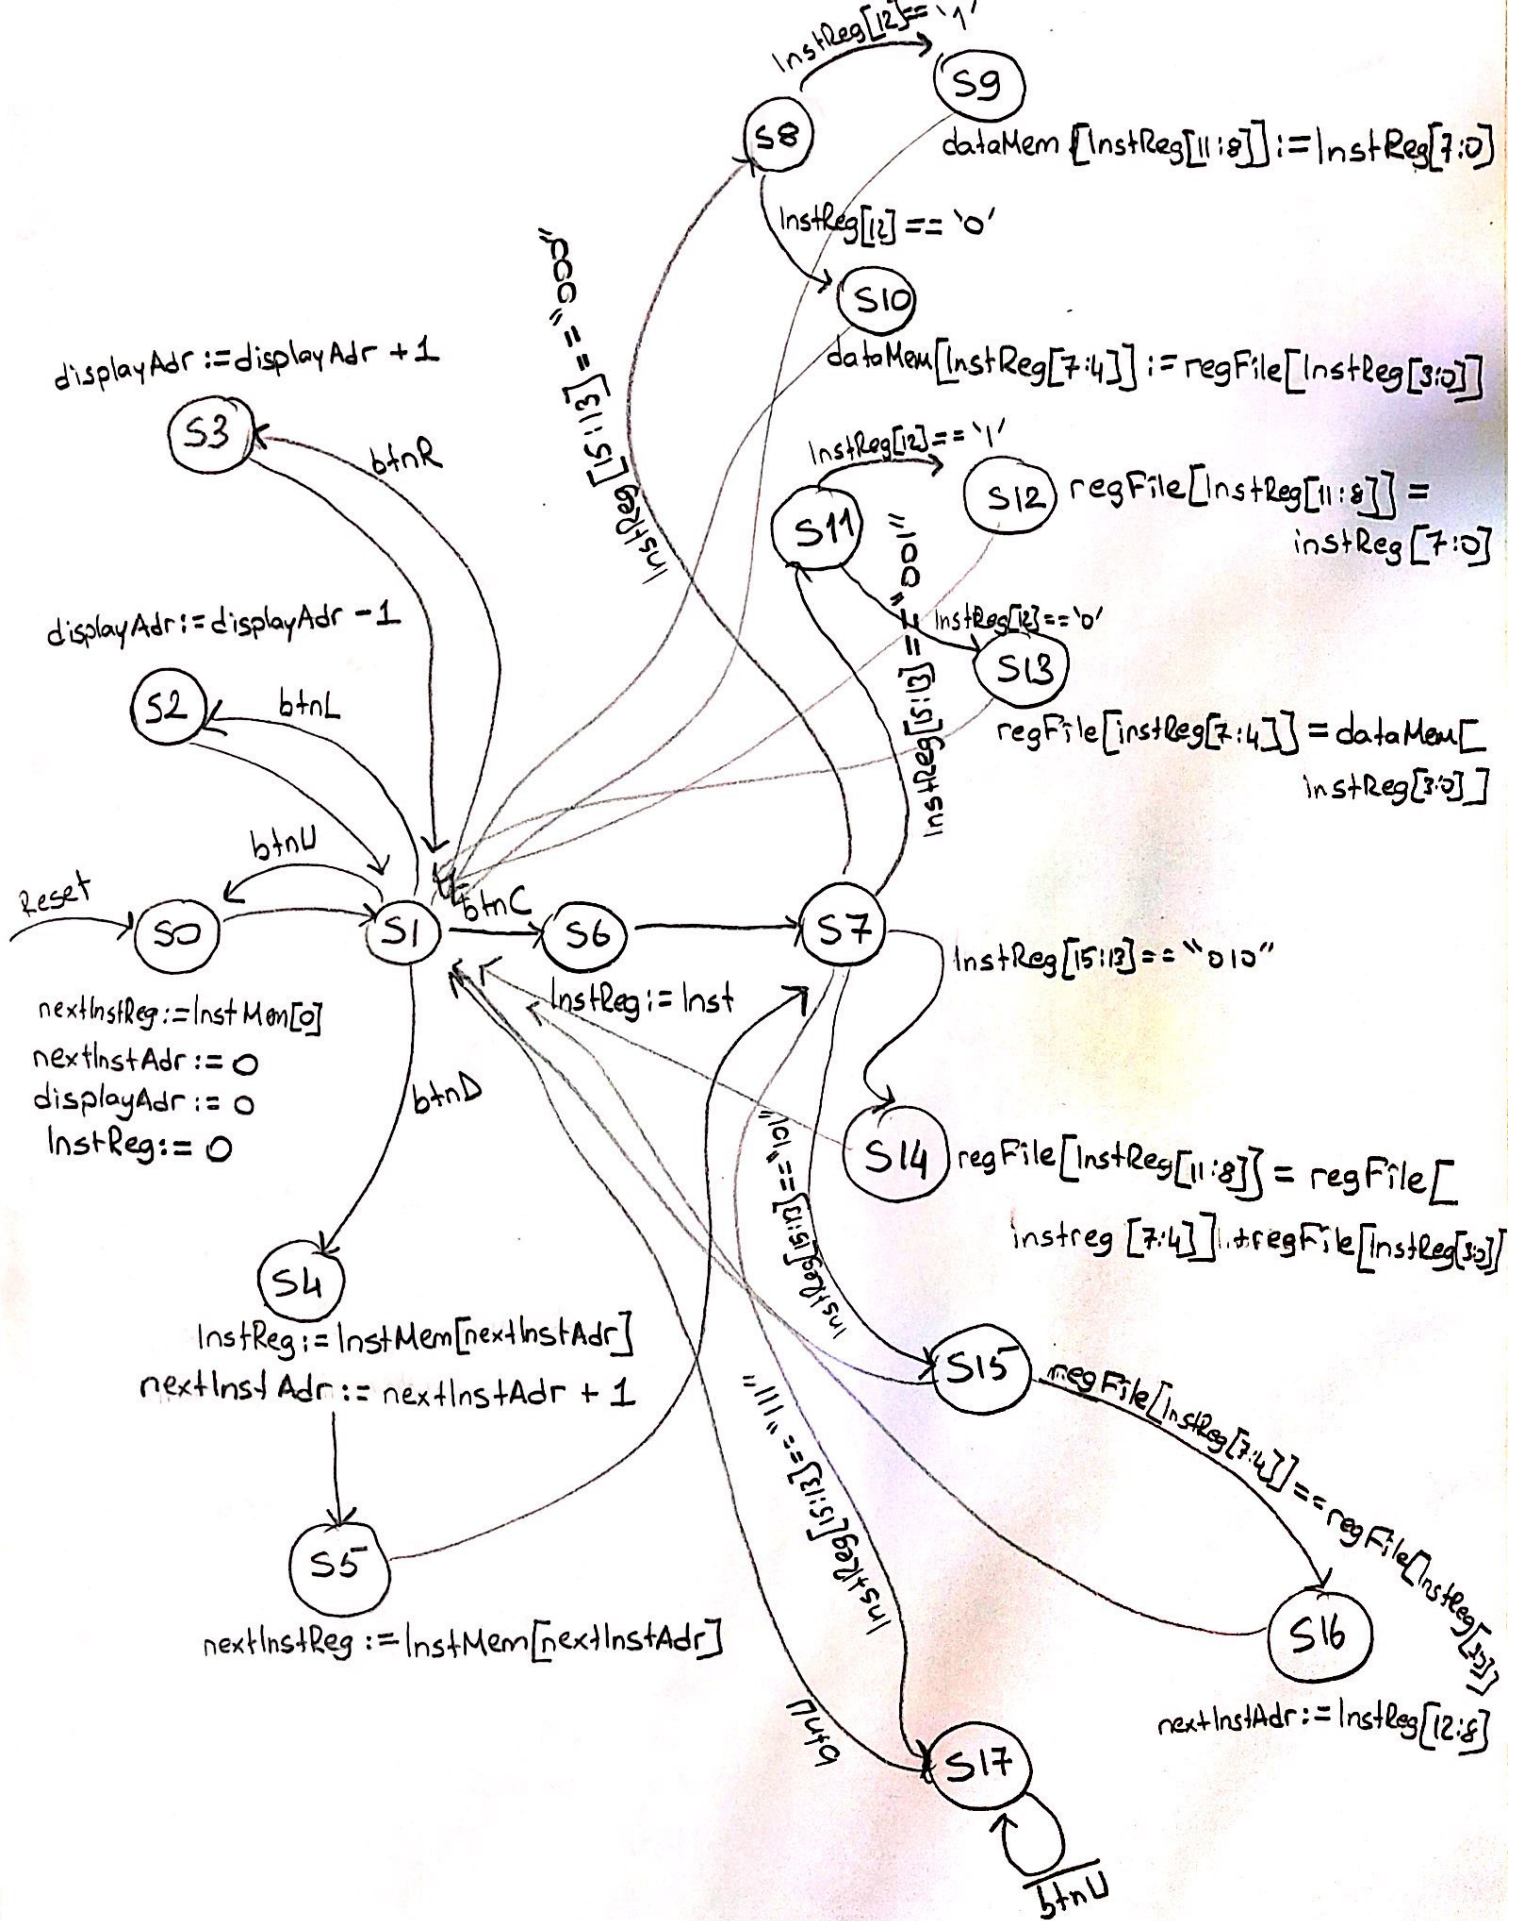 InstReg[12]== '1'
S9
S8
dataMem [InstReg[11:8]] := InstReg[7:0]
InstReg[12] == '0'
S10
dataMem[InstReg[7:4]] := regFile[InstReg[3:0]]
InstReg[15:13] == "000"
displayAdr := displayAdr + 1
S3
btnR
InstReg[12]== '1'
S11
S12
regFile[InstReg[11:8]] =
instReg[7:0]
InstReg[15:13] == "001"
InstReg[12]=='0'
S13
regFile[instReg[7:4]] = dataMem[
InstReg[3:0]]
displayAdr := displayAdr - 1
S2
btnL
btnU
Reset
S0
S1
btnC
S6
S7
InstReg := Inst
InstReg[15:13]== "010"
nextInstReg := InstMem[0]
nextInstAdr := 0
displayAdr := 0
InstReg := 0
btnD
S14
regFile[InstReg[11:8]] = regFile[
instreg [7:4]] + regFile[InstReg[3:0]]
InstReg[15:13] == "101"
S4
InstReg := InstMem[nextInstAdr]
nextInst Adr := nextInstAdr + 1
S15
regFile[InstReg[7:4]] == regFile[InstReg[3:0]]
InstReg[15:13] == "111"
S5
nextInstReg := InstMem[nextInstAdr]
S16
nextInstAdr := InstReg[12:8]
btnU
S17
btnU